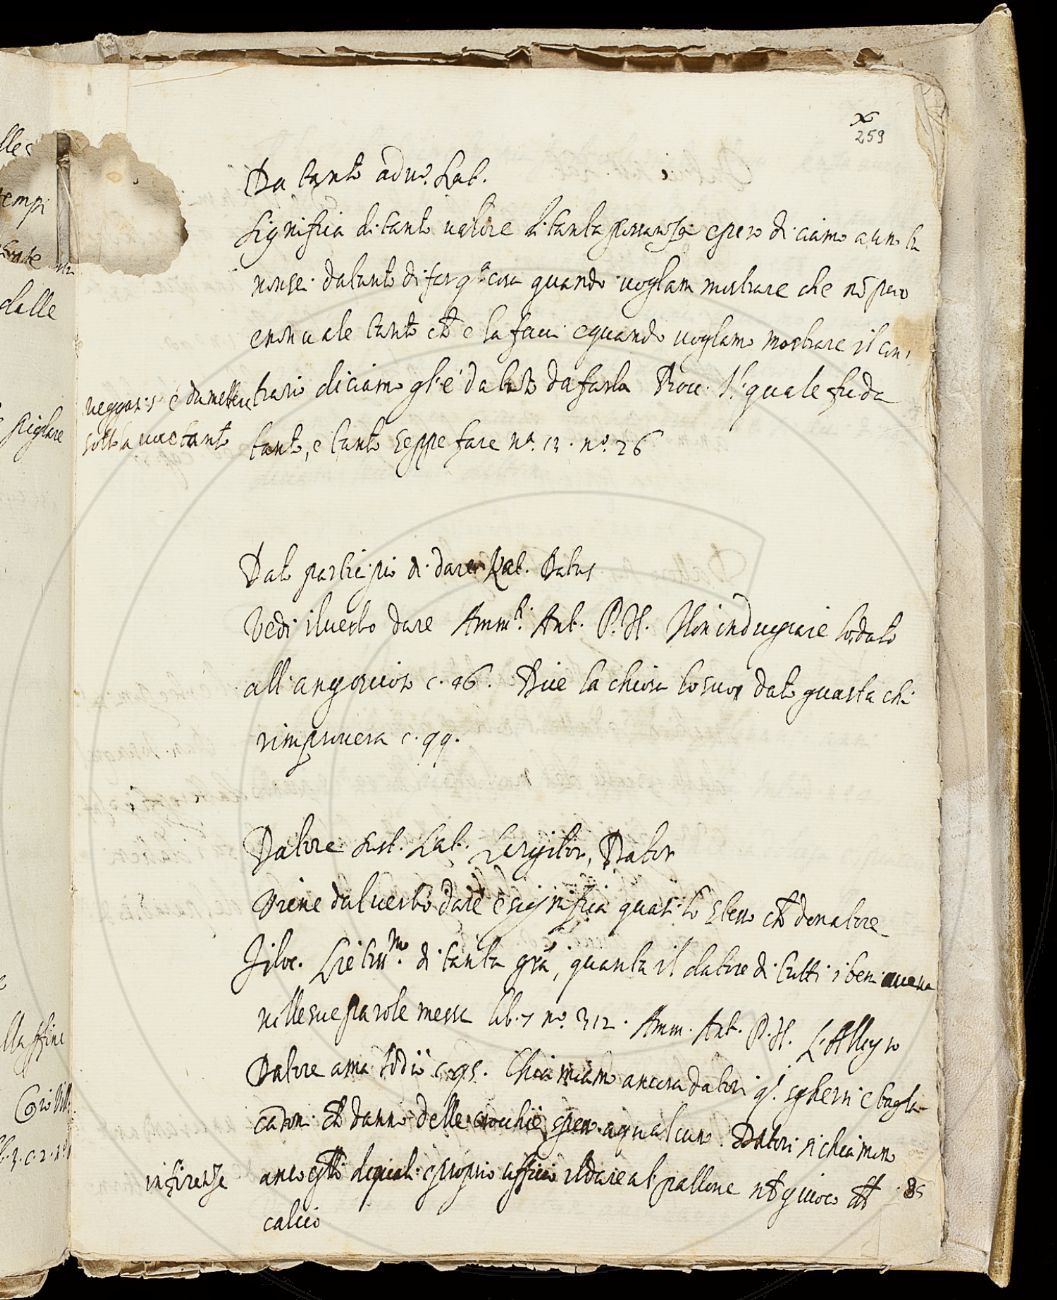 259
Da tanto adv. Lat.
Significa di tanto valore di tanta possanza e però diciamo a uno tu
non sei da tanto di far q.ta cosa quando vogliam mostrare che nō può
e non vale tanto che la facci e quando vogliamo mostrare il con-
trario diciamo gl'è da tanto da farla Bocc. Il quale fu da
tanto, e tanto seppe fare na. 13. no. 26
veggasi s'è da mettere
sotto la voce tanto
Dato participio di dare Lat. Datus
Vedi il verbo dare Amm. Ant. P. N. Non indugiare lo dato
all'angoscioso c. 96. Dice la chiosa lo suo dato guasta chi
rimprovera c. 99.
Datore sust. Lat. Largitor, Dator
Viene dal verbo dare e significa quasi lo stesso che donatore
di tanta gra, quanta il datore di tutti i beni aveva
nelle sue parole messa lib. 7 no. 312. Amm. Ant. P. N. L'Allegro
Datore ama Iddio c. 95. Chiamiamo ancora datori gl. sgherri e bagla-
cadoni che danno delle crocchie a qualcuno. Datori si chiaman
anco q.lli de quali è proprio uffizio il dare al pallone nel giuoco del
calcio
in Firenze
85
dalle
tempi